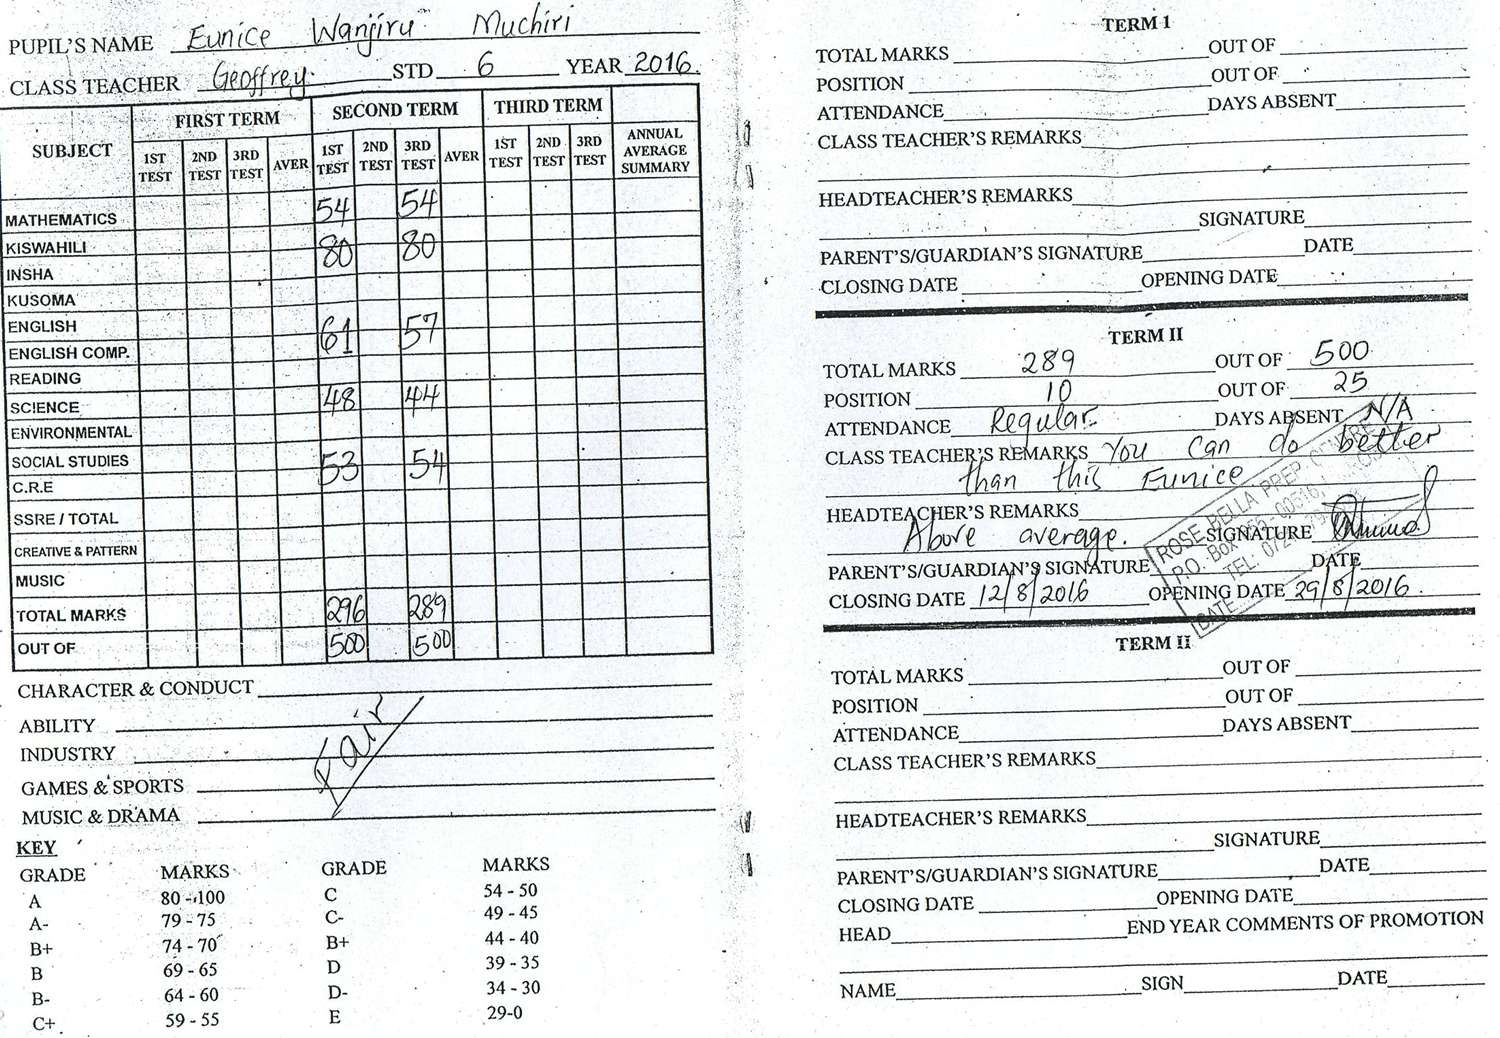 PUPIL'S NAME Eunice Wanjiru Muchiri
CLASS TEACHER Geoffrey. STD 6 YEAR 2016.
SUBJECT FIRST TERM SECOND TERM THIRD TERM ANNUAL AVERAGE SUMMARY
1ST TEST 2ND TEST 3RD TEST AVER 1ST TEST 2ND TEST 3RD TEST AVER 1ST TEST 2ND TEST 3RD TEST
MATHEMATICS 54 54
KISWAHILI 80 80
INSHA
KUSOMA
ENGLISH 61 57
ENGLISH COMP.
READING
SCIENCE 48 44
ENVIRONMENTAL
SOCIAL STUDIES 53 54
C.R.E
SSRE / TOTAL
CREATIVE & PATTERN
MUSIC
TOTAL MARKS 296 289
OUT OF 500 500
CHARACTER & CONDUCT
ABILITY
INDUSTRY
Fair
GAMES & SPORTS
MUSIC & DRAMA
KEY
GRADE MARKS GRADE MARKS
A 80 - 100 C 54 - 50
A- 79 - 75 C- 49 - 45
B+ 74 - 70 B+ 44 - 40
B 69 - 65 D 39 - 35
B- 64 - 60 D- 34 - 30
C+ 59 - 55 E 29-0
TERM 1
TOTAL MARKS OUT OF
POSITION OUT OF
ATTENDANCE DAYS ABSENT
CLASS TEACHER'S REMARKS
HEADTEACHER'S REMARKS
SIGNATURE
PARENT'S/GUARDIAN'S SIGNATURE DATE
CLOSING DATE OPENING DATE
TERM II
TOTAL MARKS 289 OUT OF 500
POSITION 10 OUT OF 25
ATTENDANCE Regular DAYS ABSENT N/A
CLASS TEACHER'S REMARKS You can do better
than this Eunice
HEADTEACHER'S REMARKS
Above average. SIGNATURE
PARENT'S/GUARDIAN'S SIGNATURE DATE
CLOSING DATE 12/8/2016 OPENING DATE 29/8/2016.
ROSE BELLA PREP CENTRE
P.O. Box
TEL:
DATE
TERM II
TOTAL MARKS OUT OF
POSITION OUT OF
ATTENDANCE DAYS ABSENT
CLASS TEACHER'S REMARKS
HEADTEACHER'S REMARKS
SIGNATURE
PARENT'S/GUARDIAN'S SIGNATURE DATE
CLOSING DATE OPENING DATE
HEAD END YEAR COMMENTS OF PROMOTION
NAME SIGN DATE